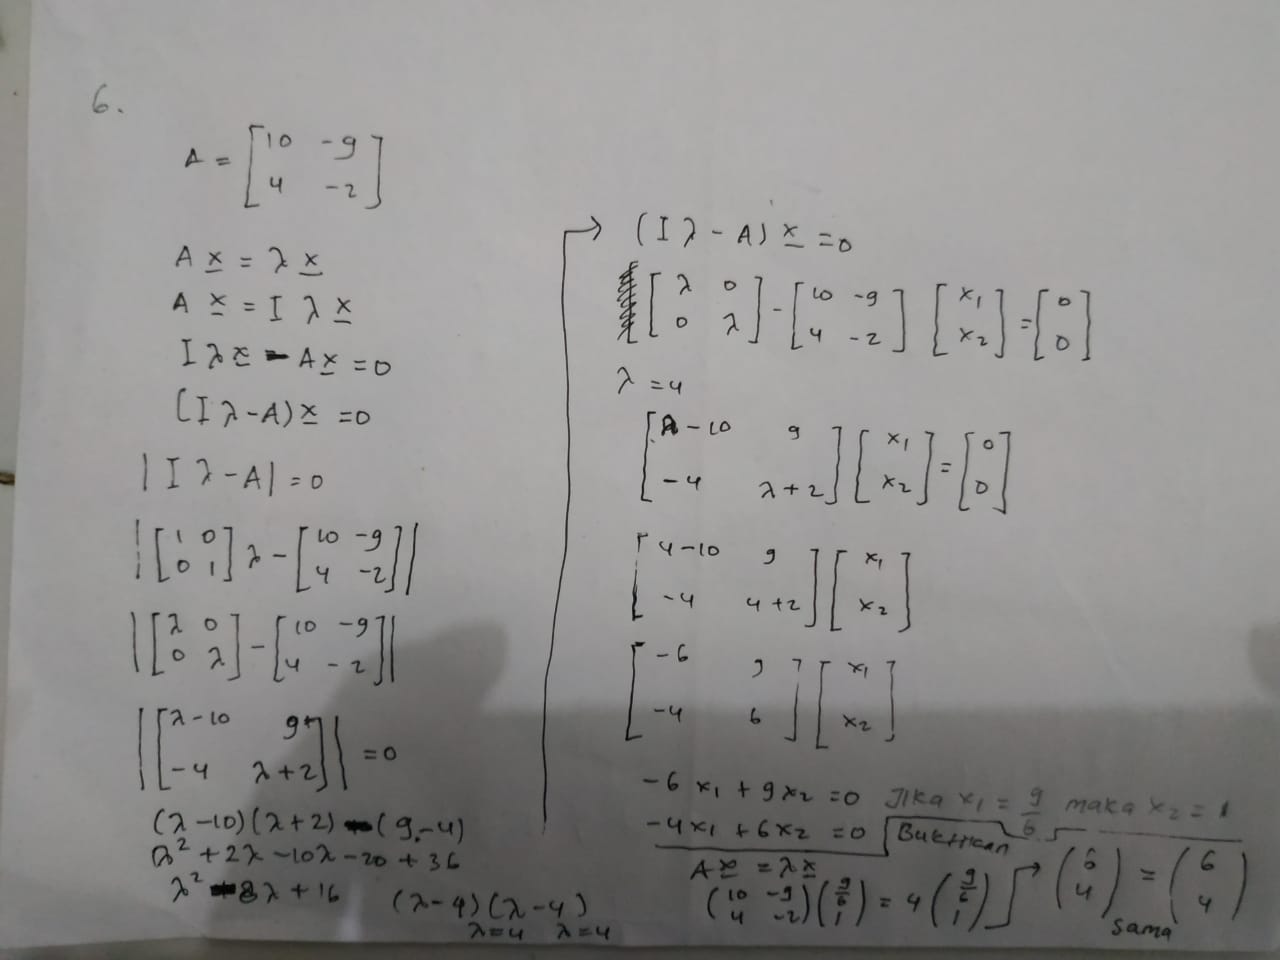 6.
A = [10 -9
4 -2]
A x = λ x
A x = I λ x
I λ x - A x = 0
(I λ - A) x = 0
| I λ - A | = 0
| [1 0
0 1] λ - [10 -9
4 -2] |
| [λ 0
0 λ] - [10 -9
4 -2] |
| [λ-10 9
-4 λ+2] | = 0
(λ-10)(λ+2) - (9.-4)
λ² + 2λ - 10λ - 20 + 36
λ² - 8λ + 16
(λ-4)(λ-4)
λ=4 λ=4
→ (I λ - A) x = 0
[λ 0
0 λ] - [10 -9
4 -2] [x₁
x₂] = [0
0]
λ = 4
[λ-10 9
-4 λ+2] [x₁
x₂] = [0
0]
[4-10 9
-4 4+2] [x₁
x₂]
[-6 9
-4 6] [x₁
x₂]
-6 x₁ + 9 x₂ = 0 Jika x₁ = 9/6 maka x₂ = 1
-4x₁ + 6x₂ = 0 Buktikan
A x = λ x
(10 -9
4 -2) (9/6
1) = 4 (9/6
1) → (6
4) = (6
4)
sama